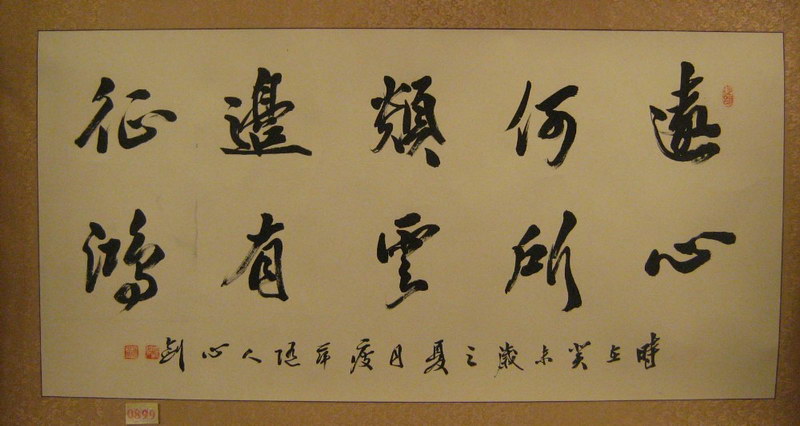 遠心
何所
類雲
邊有
征鴻
時在癸未歲之夏月隱人心劍